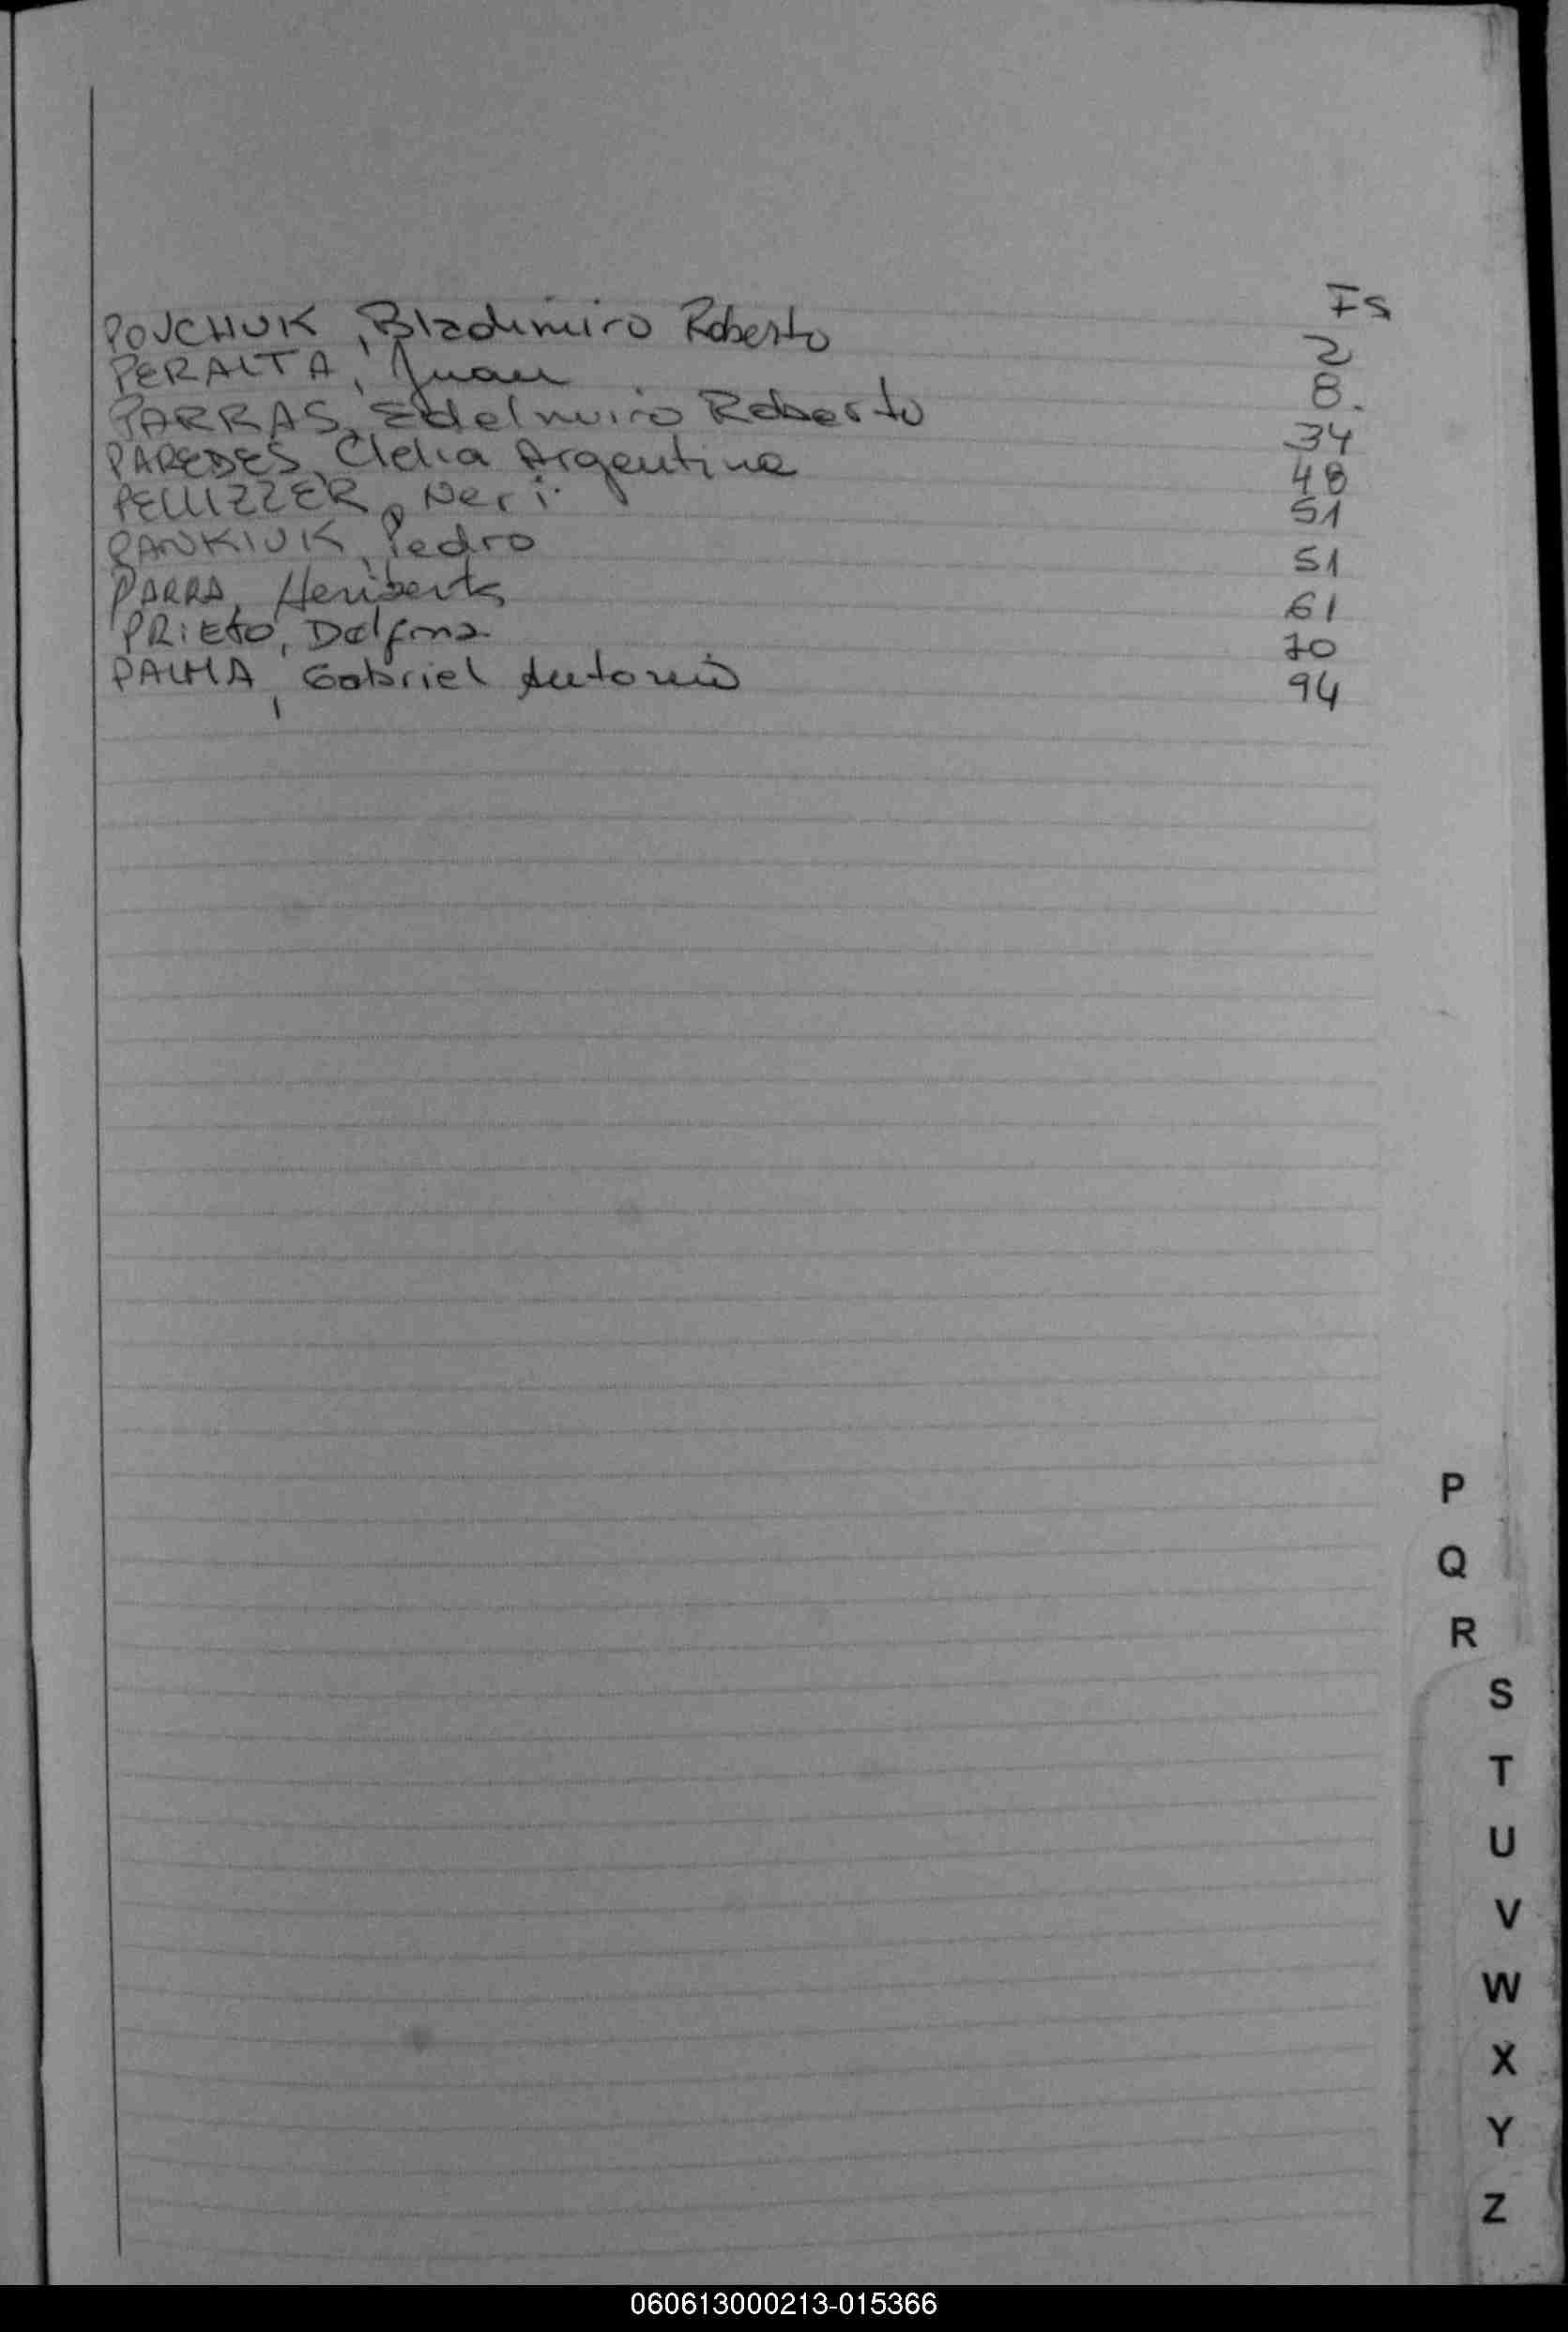 Fs
POUCHUK, Bladimiro Roberto 2
PERALTA, Juan 8.
PARRAS, Edelmiro Roberto 34
PAREDES, Clelia Argentina 48
PELLIZZER, Neri 51
PANKIUK, Pedro 51
PARRA, Heriberto 61
PRIETO, Delfina 70
PALMA, Gabriel Antonio 94
P
Q
R
S
T
U
V
W
X
Y
Z
060613000213-015366